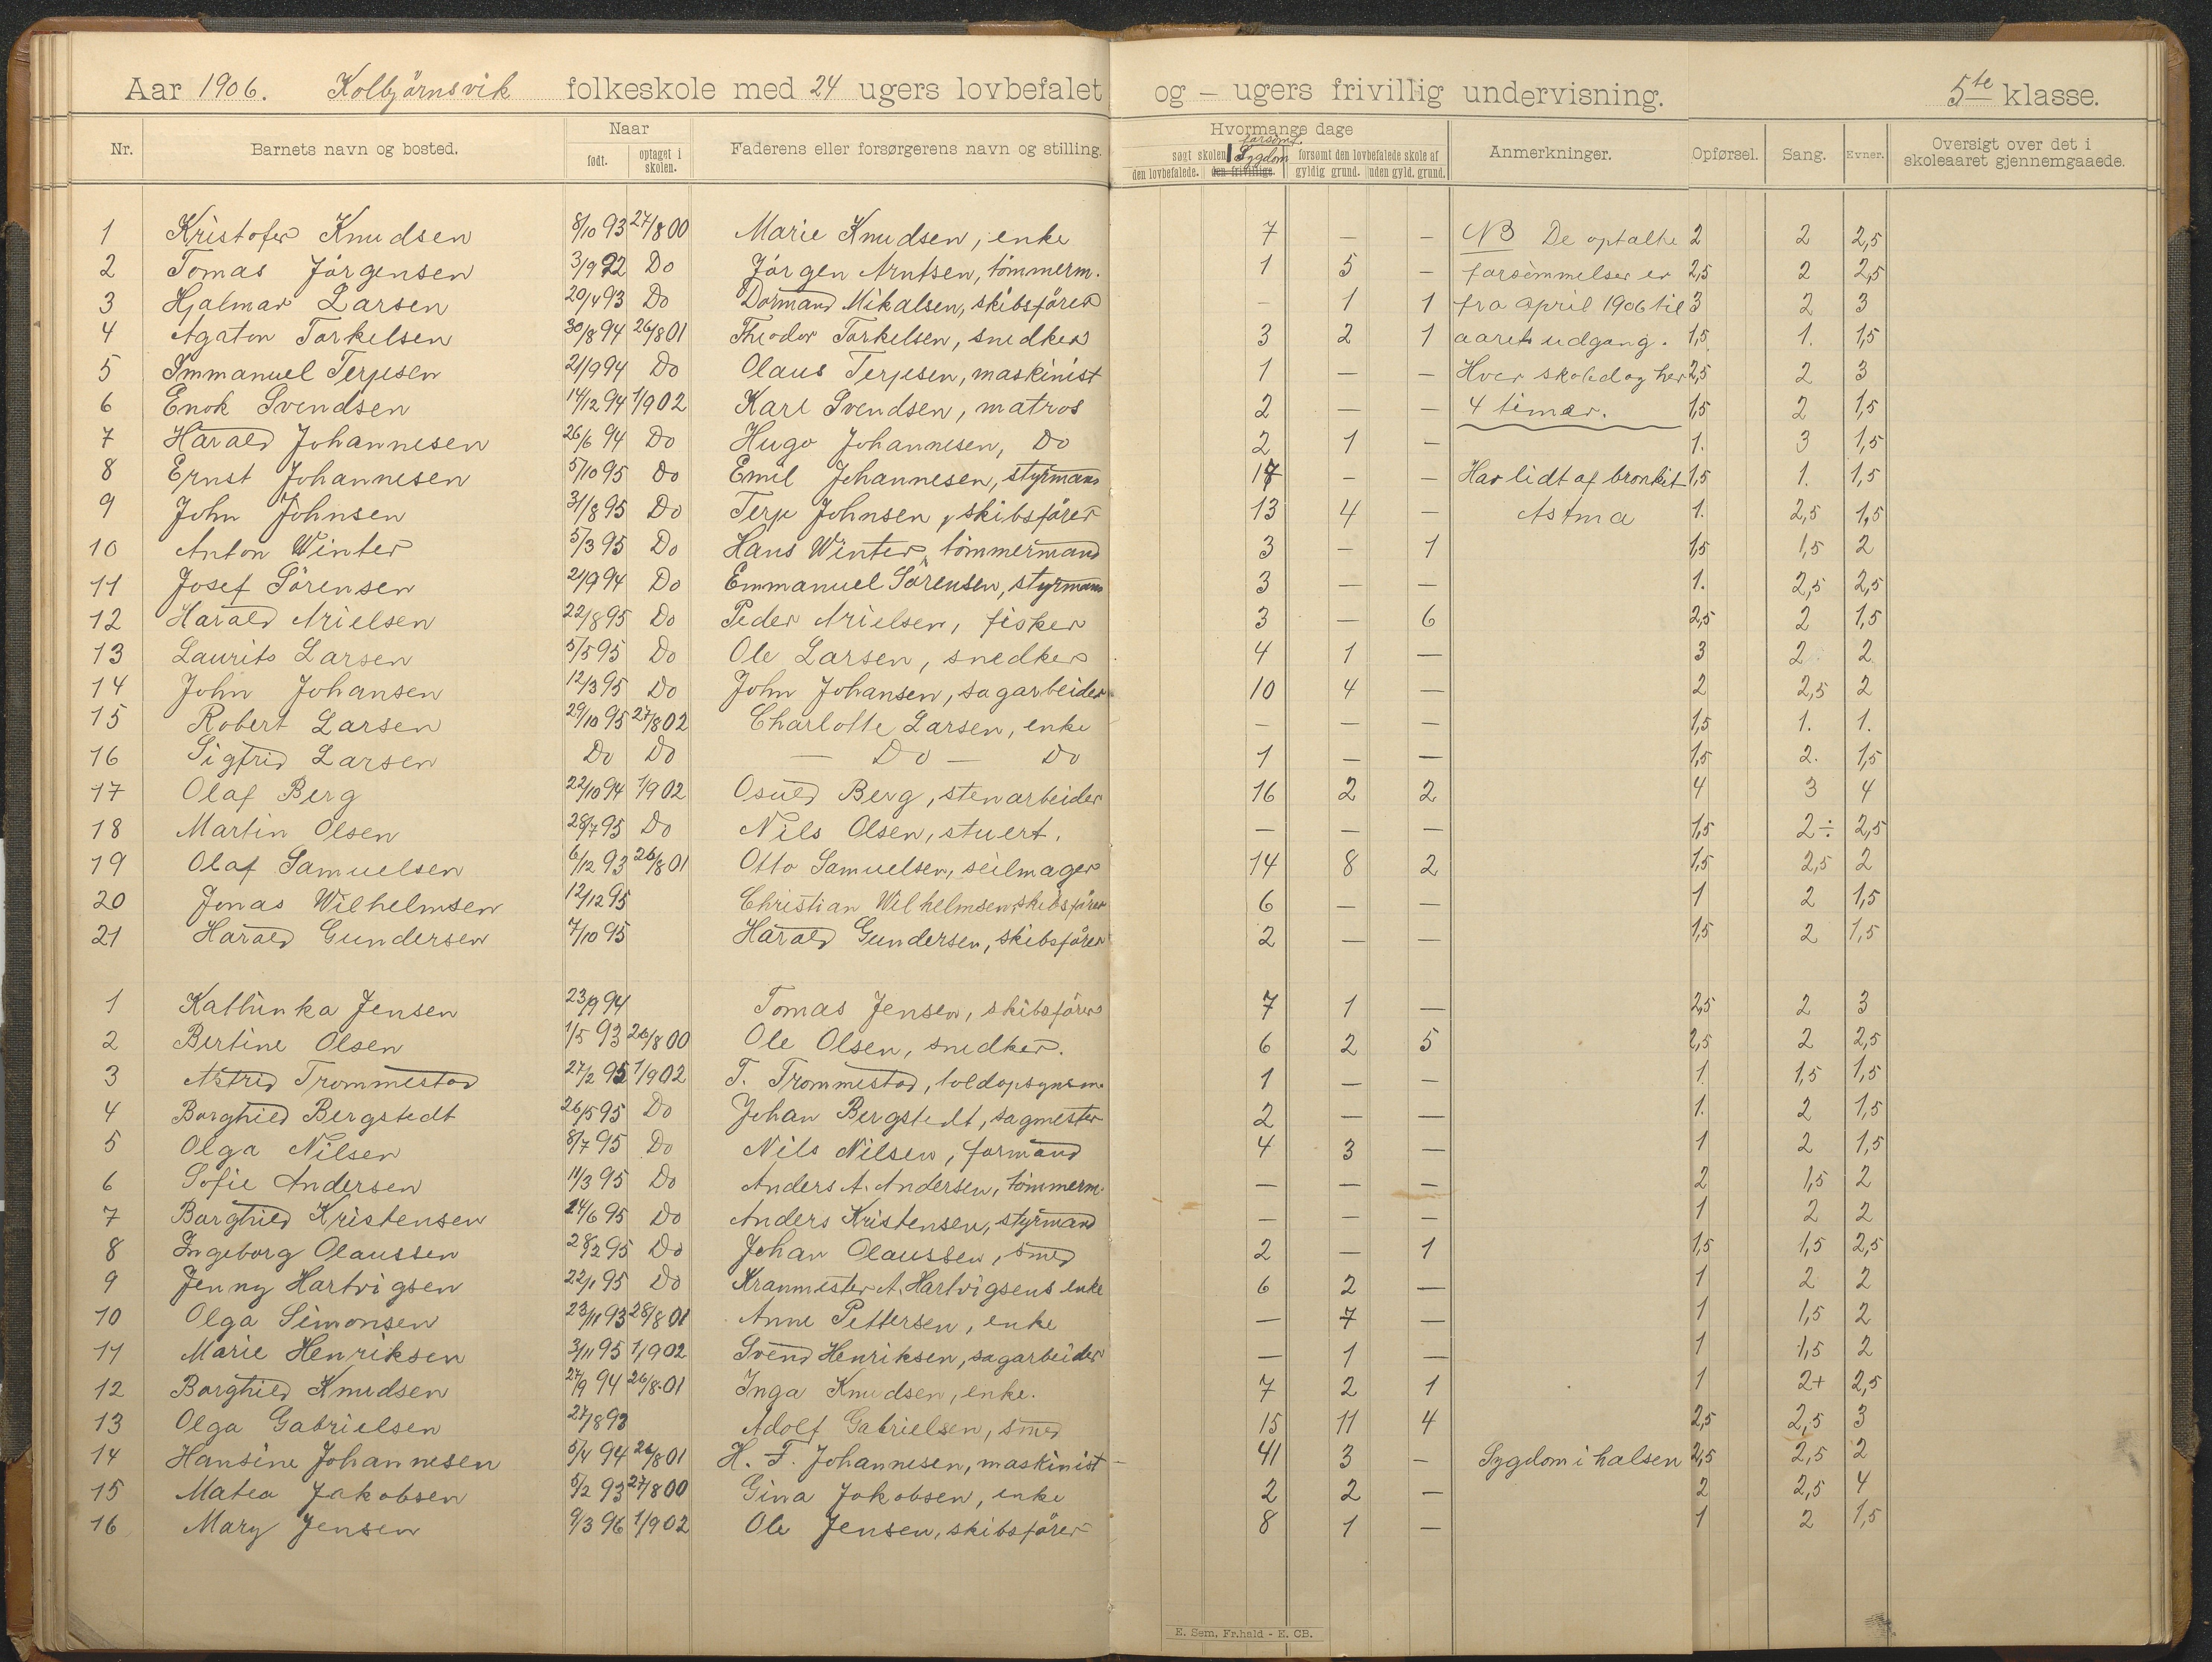 Aar 1906. Kolbjörnsvik folkeskole med 24 ugers lovbefalet og — ugers frivillig undervisning. 5te klasse.
Nr. Barnets navn og bosted. Naar født. optaget i skolen. Faderens eller forsørgerens navn og stilling. Hvormange dage søgt skolen den lovbefalede. den frivillige. forsömt Sygdom forsømt den lovbefalede skole af gyldig grund. uden gyld. grund. Anmerkninger. Opførsel. Sang. Evner. Oversigt over det i skoleaaret gjennemgaaede.
1 Kristofer Knudsen 8/10 93 27/8 00 Marie Knudsen, enke 7 — — NB De optalte 2 2 2,5
2 Tomas Jörgensen 3/9 92 Do Jörgen Arntsen, tömmerm. 1 5 — forsömmelser er 2,5 2 2,5
3 Hjalmar Larsen 20/4 93 Do Dormand Mikalsen, skibsförer — 1 1 fra april 1906 til 3 2 3
4 Agaton Torkelsen 30/8 94 26/8 01 Theodor Torkelsen, snedker 3 2 1 aarets udgang. 1,5 1. 1,5
5 Immanuel Terjesen 21/9 94 Do Olaus Terjesen, maskinist 1 — — Hver skoledag her 2,5 2 3
6 Enok Svendsen 14/12 94 1/9 02 Karl Svendsen, matros 2 — — 4 timer. 1,5 2 1,5
7 Harald Johannesen 26/6 94 Do Hugo Johannesen, Do 2 1 — 1. 3 1,5
8 Ernst Johannesen 5/10 95 Do Emil Johannesen, styrmand 17 — — Har lidt af bronkit 1,5 1. 1,5
9 John Johnsen 31/8 95 Do Terje Johnsen, skibsförer 13 4 — Astma 1. 2,5 1,5
10 Anton Winter 5/3 95 Do Hans Winter, tömmermand 3 — 1 1,5 1,5 2
11 Josef Sörensen 21/9 94 Do Emmanuel Sörensen, styrmand 3 — — 1. 2,5 2,5
12 Harald Arielsen 22/8 95 Do Peder Arielsen, fisker 3 — 6 2,5 2 1,5
13 Laurits Larsen 5/5 95 Do Ole Larsen, snedker 4 1 — 3 2 2
14 John Johansen 12/3 95 Do John Johansen, sagarbeider 10 4 — 2 2,5 2
15 Robert Larsen 29/10 95 27/8 02 Charlotte Larsen, enke — — — 1,5 1. 1.
16 Sigfrid Larsen Do Do — Do — Do 1 — — 1,5 2. 1,5
17 Olaf Berg 22/10 94 1/9 02 Osuld Berg, stenarbeider 16 2 2 4 3 4
18 Martin Olsen 28/7 95 Do Nils Olsen, stuert. — — — 1,5 2÷ 2,5
19 Olaf Samuelsen 6/12 93 26/8 01 Otto Samuelsen, seilmager 14 8 2 1,5 2,5 2
20 Jonas Wilhelmsen 12/12 95 Christian Wilhelmsen, skibsförer 6 — — 1 2 1,5
21 Harald Gundersen 7/10 95 Harald Gundersen, skibsförer 2 — — 1,5 2 1,5
1 Kathinka Jensen 23/9 94 Tomas Jensen, skibsförer 7 1 — 2,5 2 3
2 Bertine Olsen 1/5 93 26/8 00 Ole Olsen, snedker. 6 2 5 2,5 2 2,5
3 Astrid Trommestad 27/2 95 1/9 02 T. Trommestad, toldopsynsm. 1 — — 1. 1,5 1,5
4 Borghild Bergstedt 26/5 95 Do Johan Bergstedt, sagmester 2 — — 1. 2 1,5
5 Olga Nilsen 8/7 95 Do Nils Nilsen, formand 4 3 — 1 2 1,5
6 Sofie Andersen 11/3 95 Do Anders A. Andersen, tömmerm. — — — 2 1,5 2
7 Borghild Kristensen 24/6 95 Do Anders Kristensen, styrmand — — — 1 2 2
8 Ingeborg Olaussen 28/2 95 Do Johan Olaussen, smed 2 — 1 1,5 1,5 2,5
9 Jenny Hartvigsen 22/1 95 Do Kranmester A. Hartvigsens enke 6 2 — 1 2 2
10 Olga Simonsen 23/11 93 28/8 01 Anne Pettersen, enke — 7 — 1 1,5 2
11 Marie Henriksen 3/11 95 1/9 02 Svend Henriksen, sagarbeider — 1 — 1 1,5 2
12 Borghild Knudsen 27/9 94 26/8 01 Inga Knudsen, enke. 7 2 1 1 2+ 2,5
13 Olga Gabrielsen 27/8 93 Adolf Gabrielsen, smed 15 11 4 2,5 2,5 3
14 Hansine Johannesen 5/4 94 26/8 01 H. F. Johannesen, maskinist 41 3 — Sygdom i halsen 2,5 2,5 2
15 Matea Jakobsen 5/2 93 27/8 00 Gina Jakobsen, enke 2 2 — 2 2,5 4
16 Mary Jensen 9/3 96 1/9 02 Ole Jensen, skibsförer 8 1 — 1 2 1,5
E. Sem, Fr.hald - E. CB.